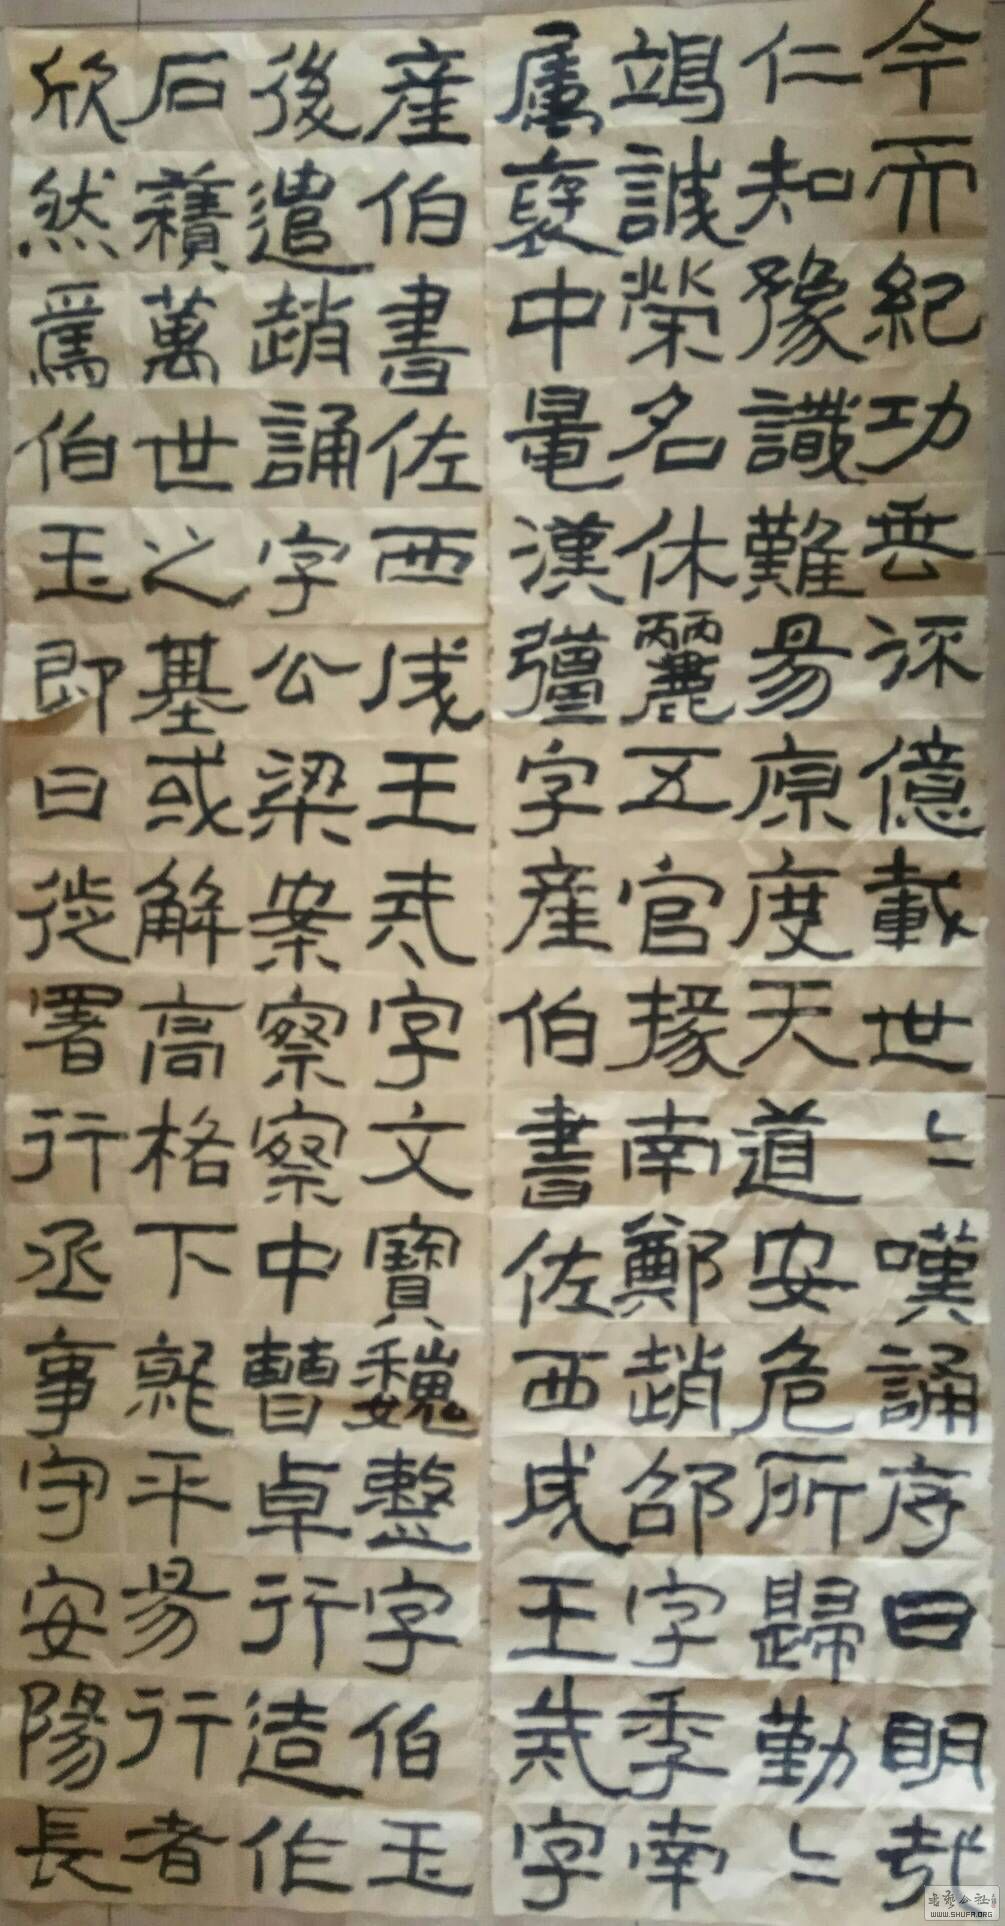 今而紀功垂流億載世〻嘆誦序曰明哉
仁知豫識難易原度天道安危所歸勤〻
竭誠榮名休麗五官掾南鄭趙邵字季南
屬褒中鼂漢彊字產伯書佐西成王戒字
產伯書佐西成王戒字文寶魏整字伯玉
後遣趙誦字公梁案察察中曹卓行造作
石積萬世之基或解高格下就平易行者
欣然焉伯玉即日徙署行丞事守安陽長
书艺公社
WWW.SHUFA.ORG